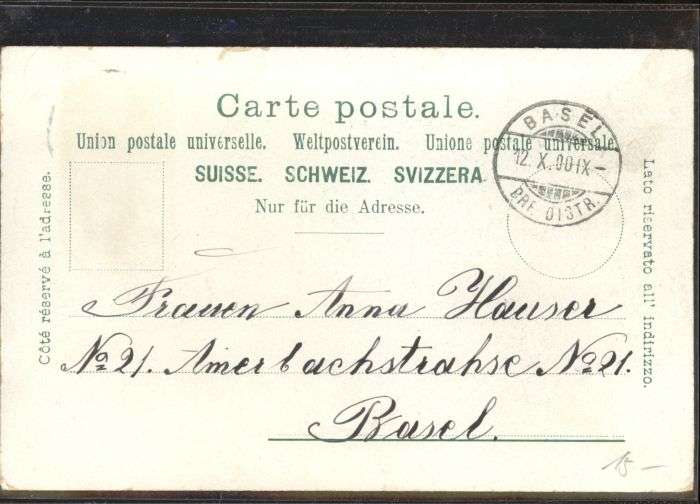 Carte postale.
Union postale universelle. Weltpostverein. Unione postale universale
SUISSE. SCHWEIZ. SVIZZERA.
Nur für die Adresse.
BASEL
12. X. 00 IX -
BRF. DISTR.
Côté réservé à l'adresse.
Lato riservato all' indirizzo.
Frauen Anna Hauser
No 21. Amerbachstrahse No 21.
Basel.
15-